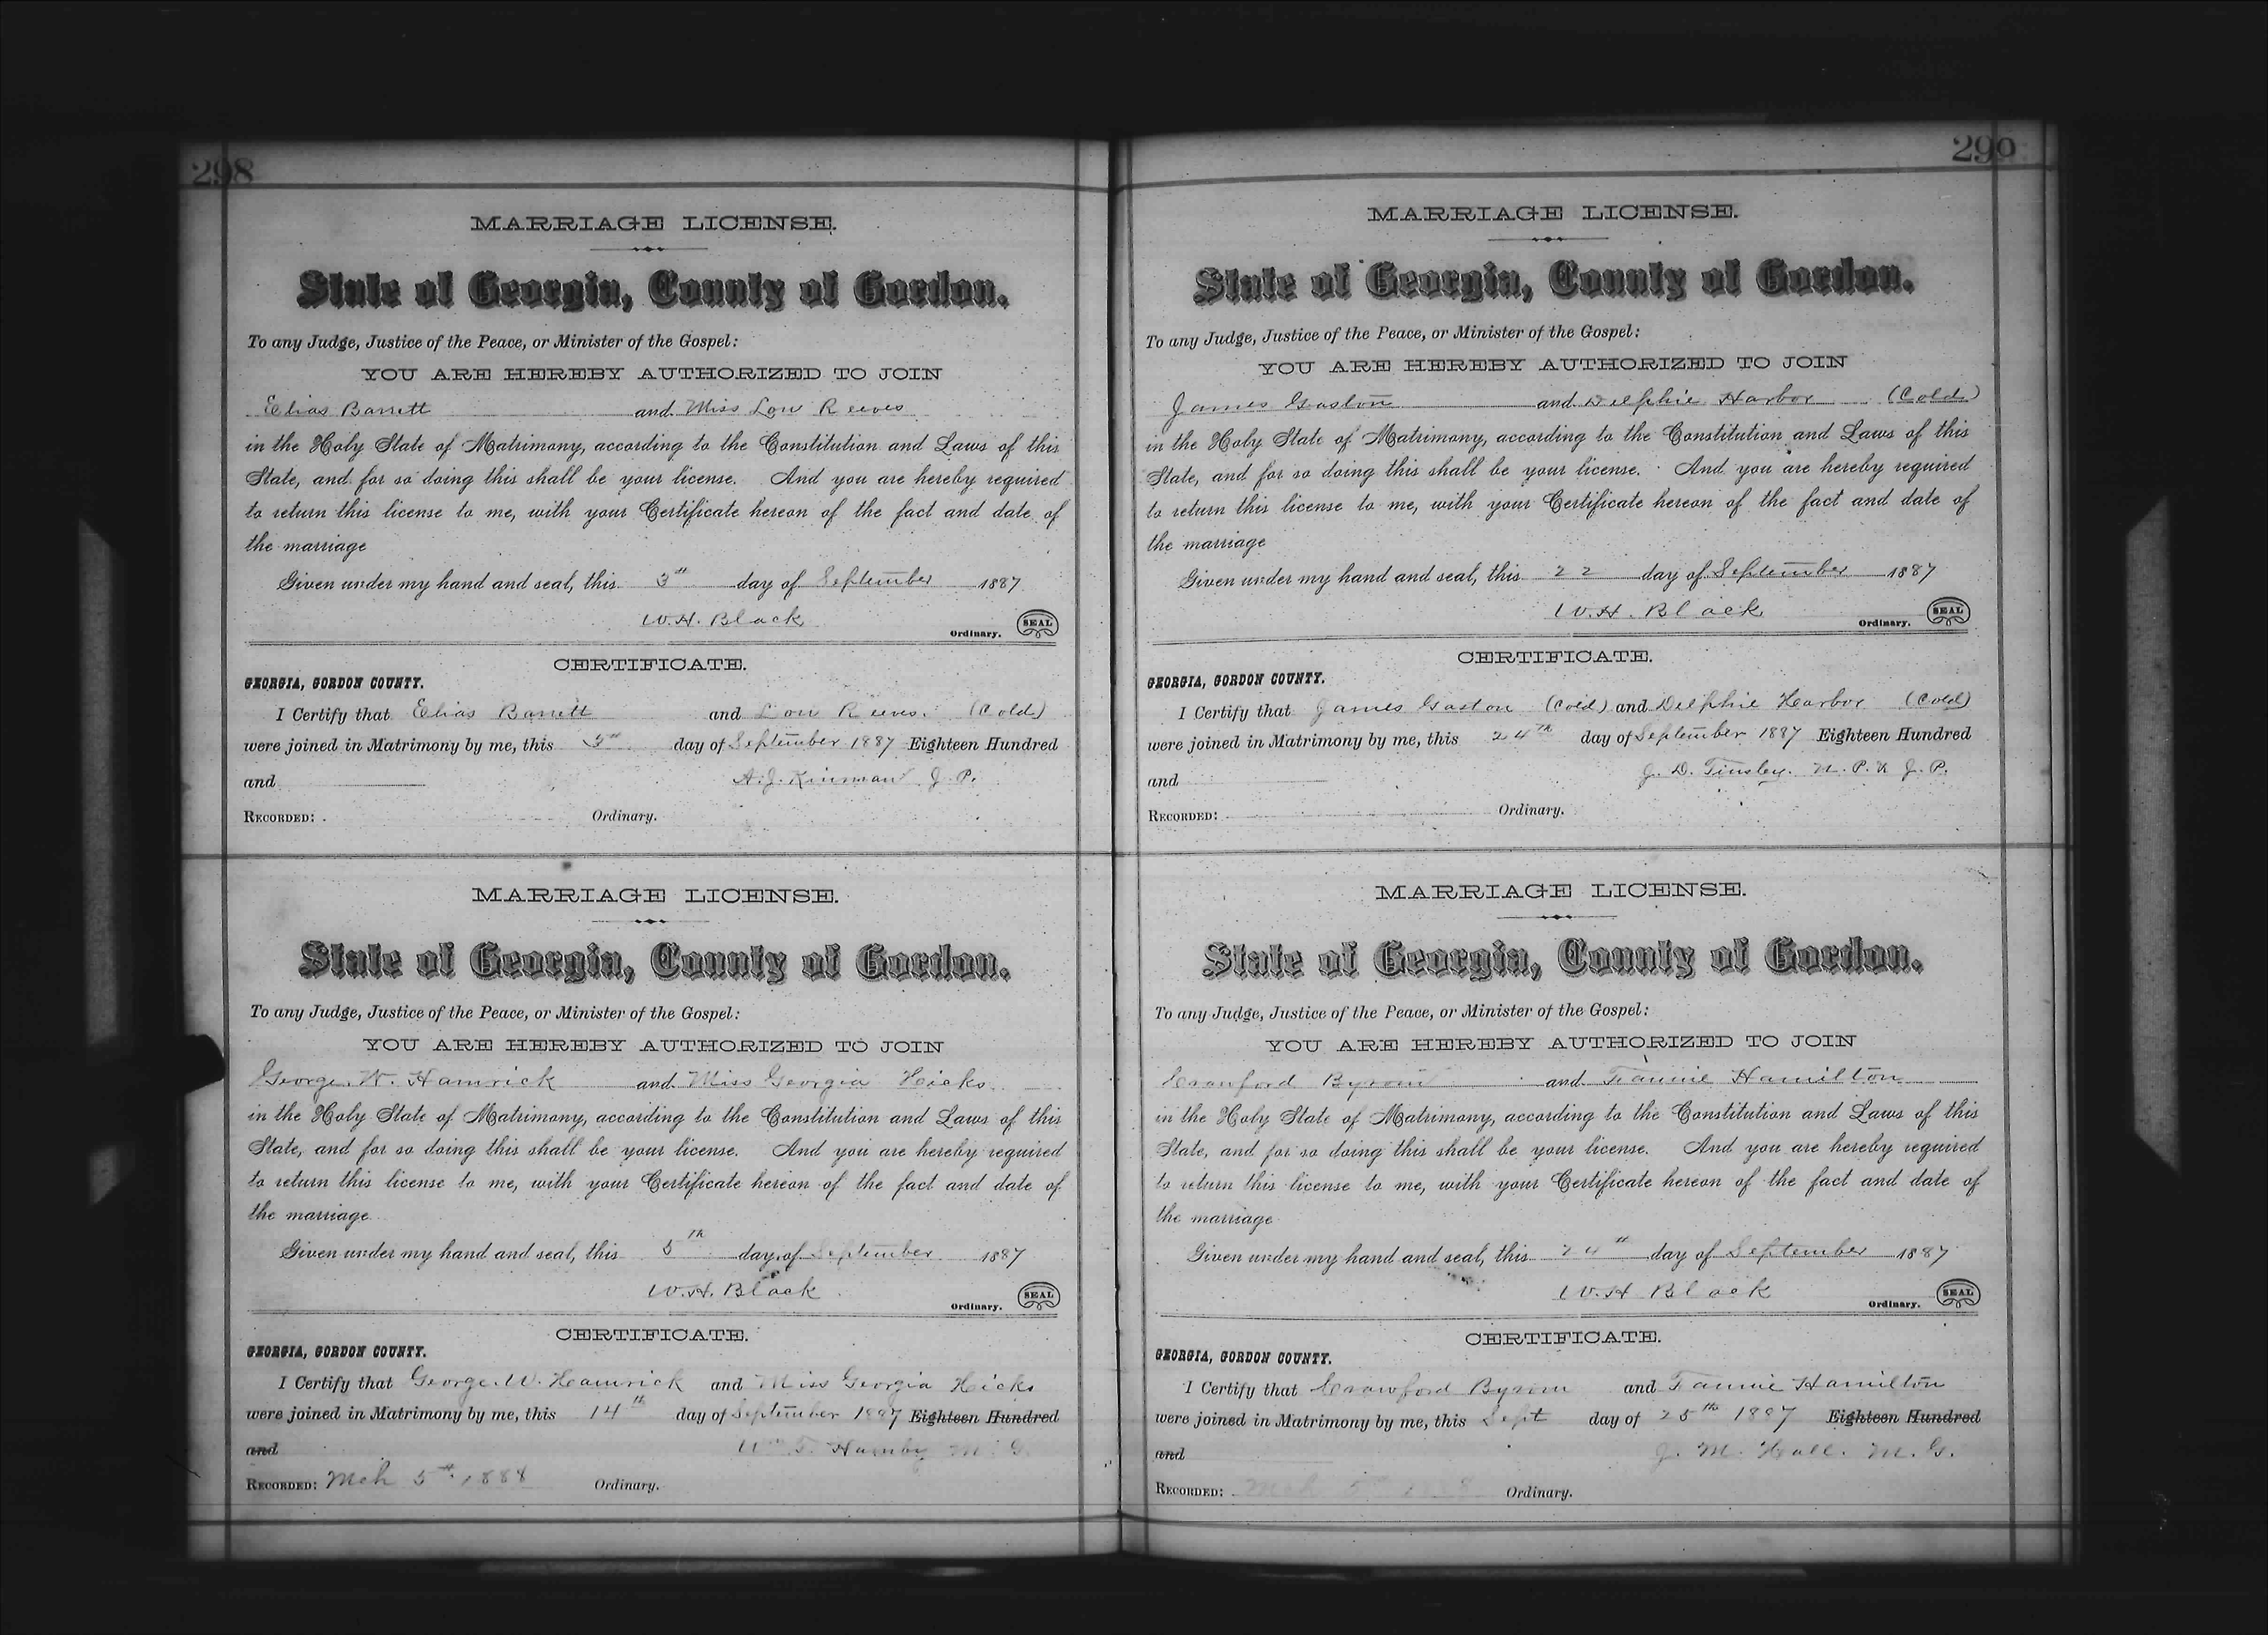 298
MARRIAGE LICENSE.
State of Georgia, County of Gordon.
To any Judge, Justice of the Peace, or Minister of the Gospel:
YOU ARE HEREBY AUTHORIZED TO JOIN
Elias Barrett and Miss Lou Reeves
in the Holy State of Matrimony, according to the Constitution and Laws of this
State, and for so doing this shall be your license. And you are hereby required
to return this license to me, with your Certificate hereon of the fact and date of
the marriage
Given under my hand and seal, this 3rd day of September 1887
W.H. Black
Ordinary. SEAL
CERTIFICATE.
GEORGIA, GORDON COUNTY.
I Certify that Elias Barrett and Lou Reeves. (Cold)
were joined in Matrimony by me, this day of September 1887 Eighteen Hundred
and A.J. Kinman J.P.
RECORDED: Ordinary.
MARRIAGE LICENSE.
State of Georgia, County of Gordon.
To any Judge, Justice of the Peace, or Minister of the Gospel:
YOU ARE HEREBY AUTHORIZED TO JOIN
George. W. Hamrick and Miss Georgia Hicks.
in the Holy State of Matrimony, according to the Constitution and Laws of this
State, and for so doing this shall be your license. And you are hereby required
to return this license to me, with your Certificate hereon of the fact and date of
the marriage
Given under my hand and seal, this 5th day of September 1887
W.H. Black
Ordinary. SEAL
CERTIFICATE.
GEORGIA, GORDON COUNTY.
I Certify that George. W. Hamrick and Miss Georgia Hicks
were joined in Matrimony by me, this 14th day of September 1887 Eighteen Hundred
and Wm. T. Hamby M.G.
RECORDED: Mch 5th 1888 Ordinary.
299
MARRIAGE LICENSE.
State of Georgia, County of Gordon.
To any Judge, Justice of the Peace, or Minister of the Gospel:
YOU ARE HEREBY AUTHORIZED TO JOIN
James Gaston and Delphie Harbor (Cold)
in the Holy State of Matrimony, according to the Constitution and Laws of this
State, and for so doing this shall be your license. And you are hereby required
to return this license to me, with your Certificate hereon of the fact and date of
the marriage
Given under my hand and seal, this 22 day of September 1887
W.H. Black
Ordinary. SEAL
CERTIFICATE.
GEORGIA, GORDON COUNTY.
I Certify that James Gaston (Cold) and Delphie Harbor (Cold)
were joined in Matrimony by me, this 24th day of September 1887 Eighteen Hundred
and J. D. Tinsley. N. P. & J. P.
RECORDED: Ordinary.
MARRIAGE LICENSE.
State of Georgia, County of Gordon.
To any Judge, Justice of the Peace, or Minister of the Gospel:
YOU ARE HEREBY AUTHORIZED TO JOIN
Crawford Byrom and Fannie Hamilton
in the Holy State of Matrimony, according to the Constitution and Laws of this
State, and for so doing this shall be your license. And you are hereby required
to return this license to me, with your Certificate hereon of the fact and date of
the marriage
Given under my hand and seal, this 24th day of September 1887
W.H Black
Ordinary. SEAL
CERTIFICATE.
GEORGIA, GORDON COUNTY.
I Certify that Crawford Byrom and Fannie Hamilton
were joined in Matrimony by me, this Sept day of 25th 1887 Eighteen Hundred
and J. M. Hall. M.G.
RECORDED: Mch 5th 1888 Ordinary.